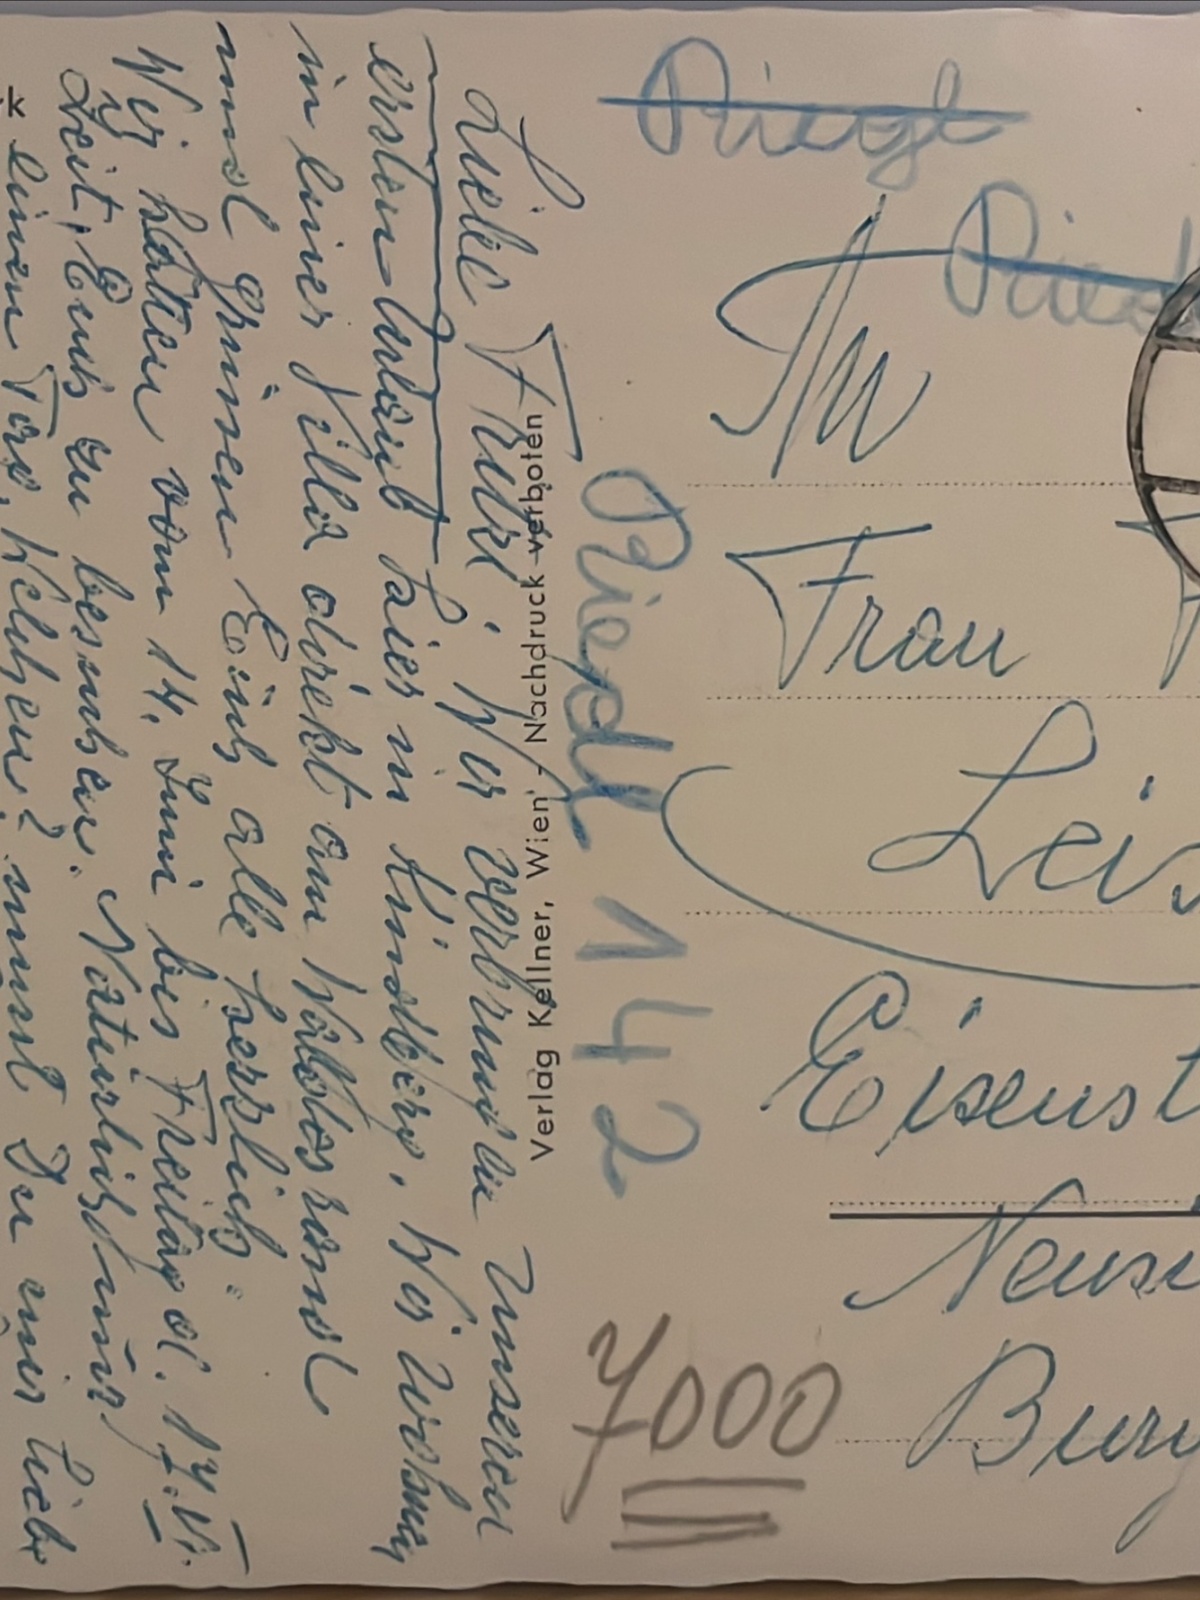 Liebe Trude! Wir verbringen unseren
ersten Urlaub hier in Kindberg. Wir wohnen
in einer Villa direkt am Waldesrand
und grüssen Euch alle herzlich.
Wir hätten vom 14. Juni bis Freitag d. 17. VI.
Zeit, Euch zu besuchen. Natürlich nur
einen Tag. Welchen? nennst Du mir liebe
Verlag Kellner, Wien - Nachdruck verboten
Riedl 142
7000
An
Frau
Leis
Eisenst
Neus
Burg